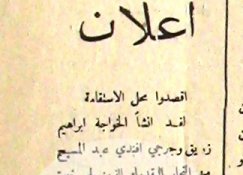 اعلان
اقصدوا محل الاستقامة
لقد انشأ الخواجة ابراهيم
زريق وجرجي افندي عبد المسيح